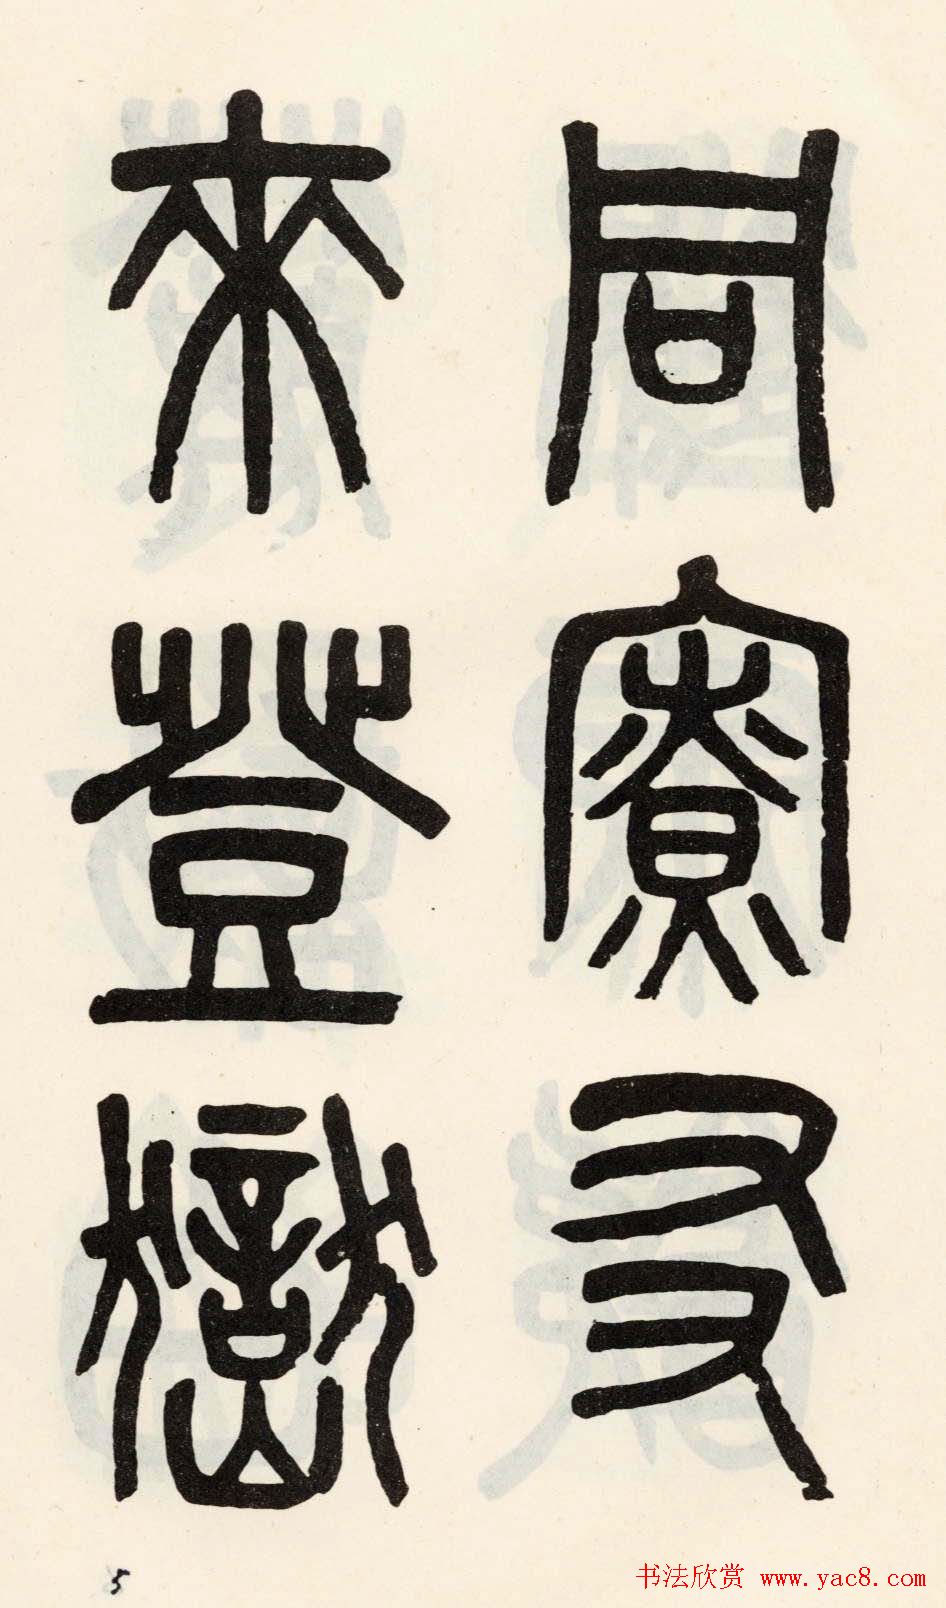 同寮友
來登嶽
5
书法欣赏 www.yac8.com